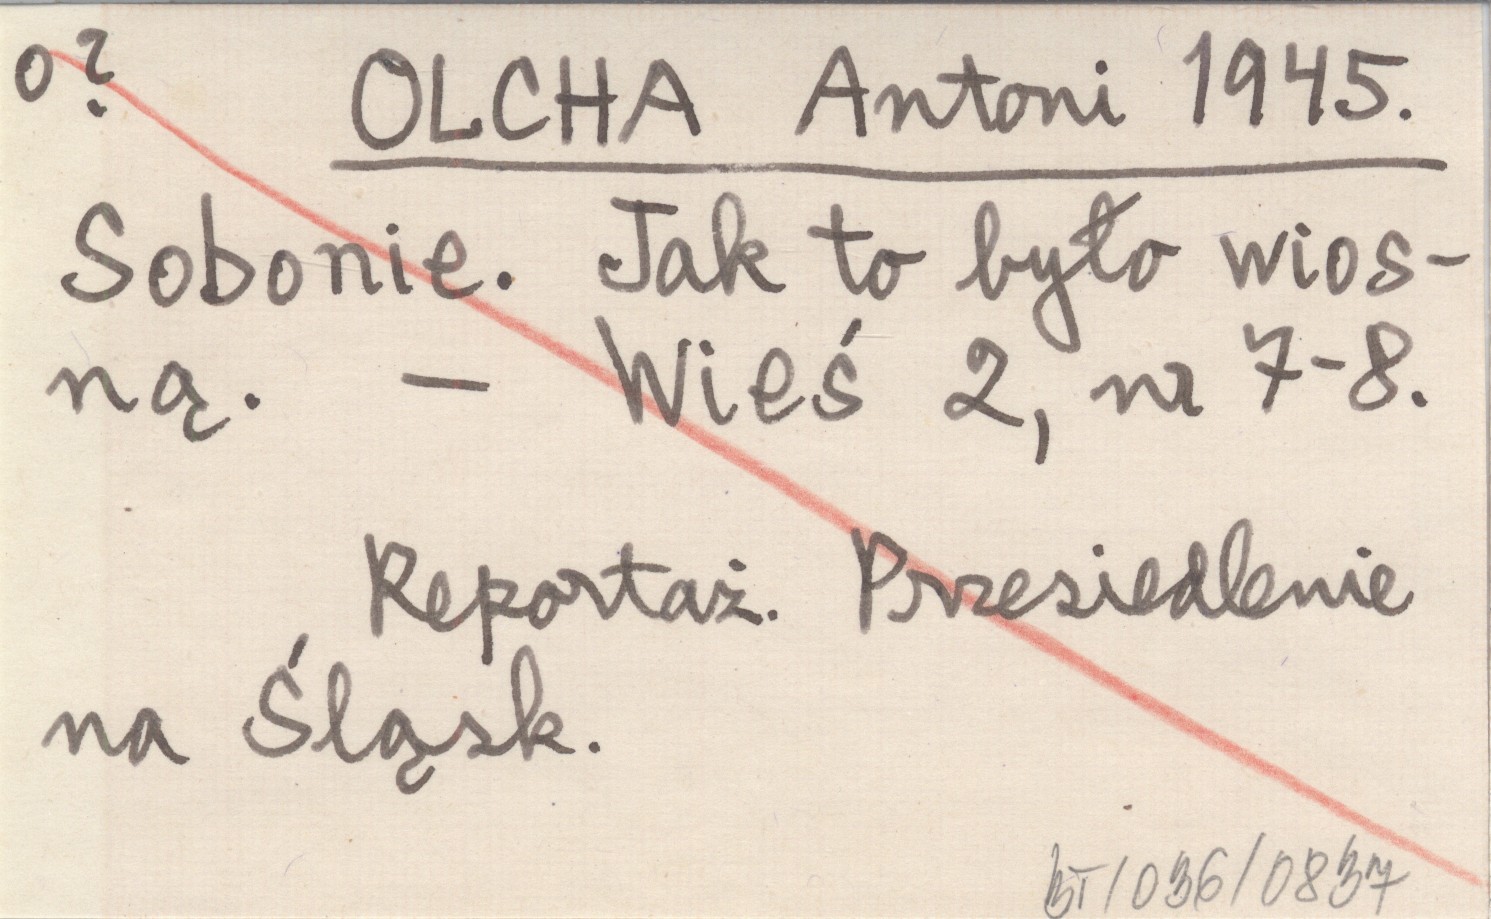 o?
OLCHA Antoni 1945.
Sobonie. Jak to było wios-
ną. — Wieś 2, nr 7-8.
Reportaż. Przesiedlenie
na Śląsk.
BT/036/0837